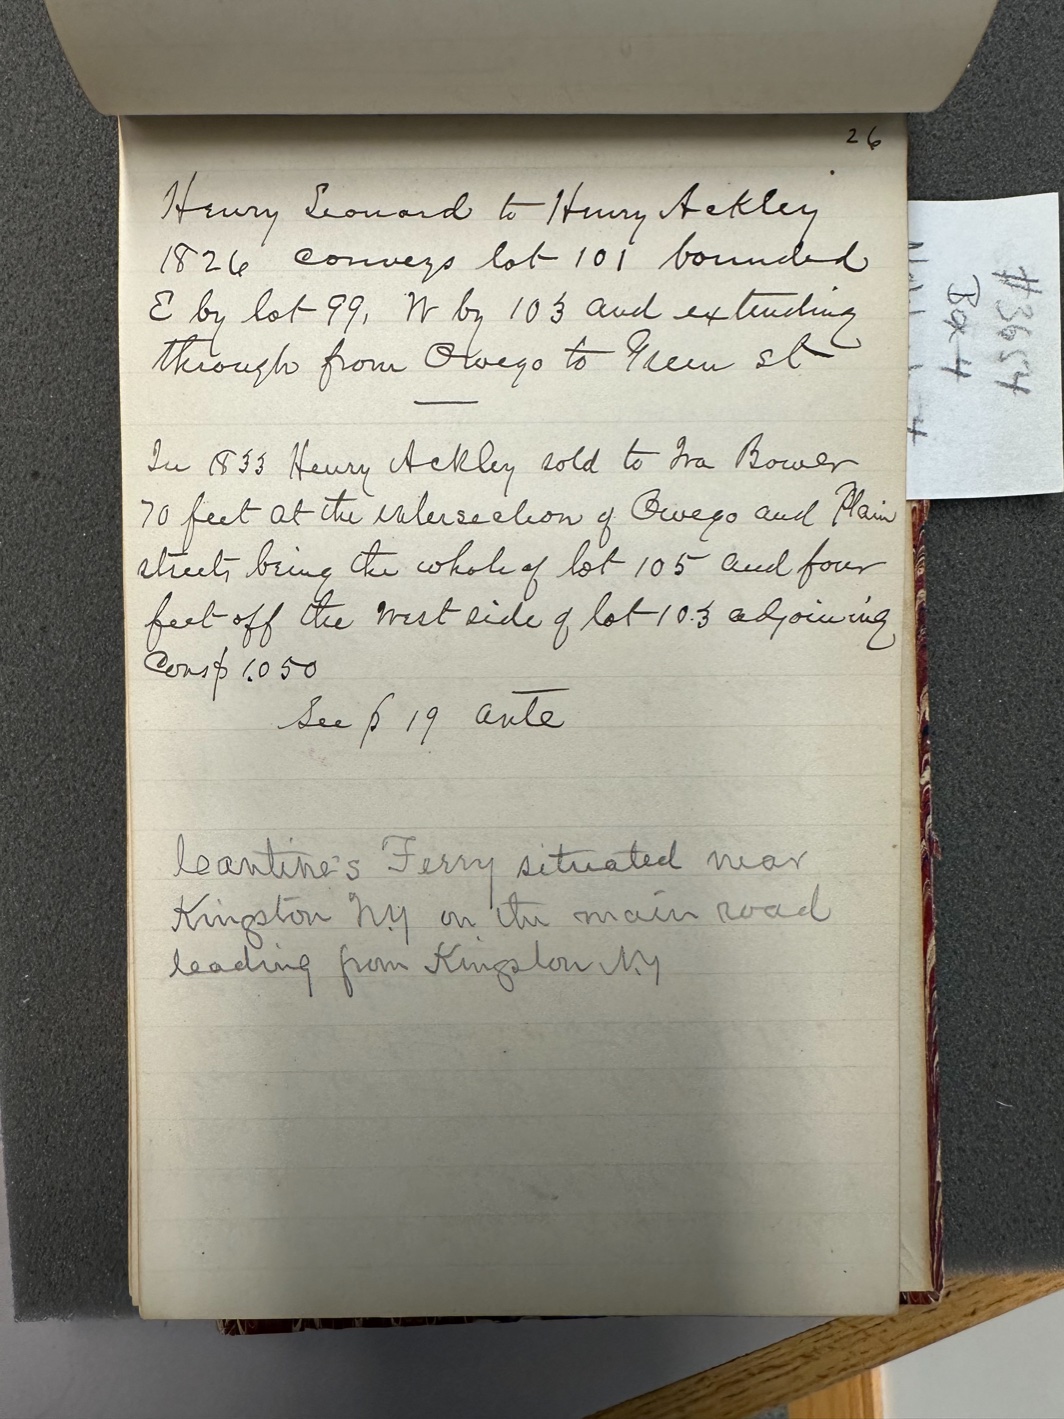 26
Henry Leonard to Henry Ackley
1826 conveys lot 101 bounded
E by lot 99, W by 103 and extending
through from Owego to Green st
In 1833 Henry Ackley sold to Ira Bower
70 feet at the intersection of Owego and Plain
streets being the whole of lot 105 and four
feet off the West side of lot 103 adjoining
Cons $ 1.050
See p 19 ante
Cantine's Ferry situated near
Kingston N.Y on the main road
leading from Kingston N.Y
#3654
Box 4